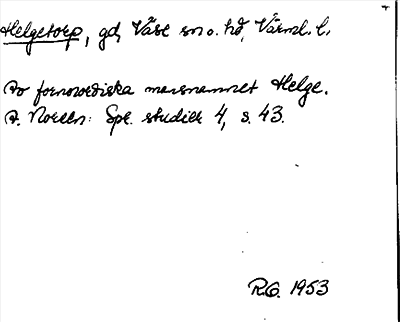 Helgetorp, gd, Väse sn o. hd, Värml. l.
Av fornnordiska mansnamnet Helge.
A. Noreen: Spr. studier 4, s. 43.
R.O. 1953